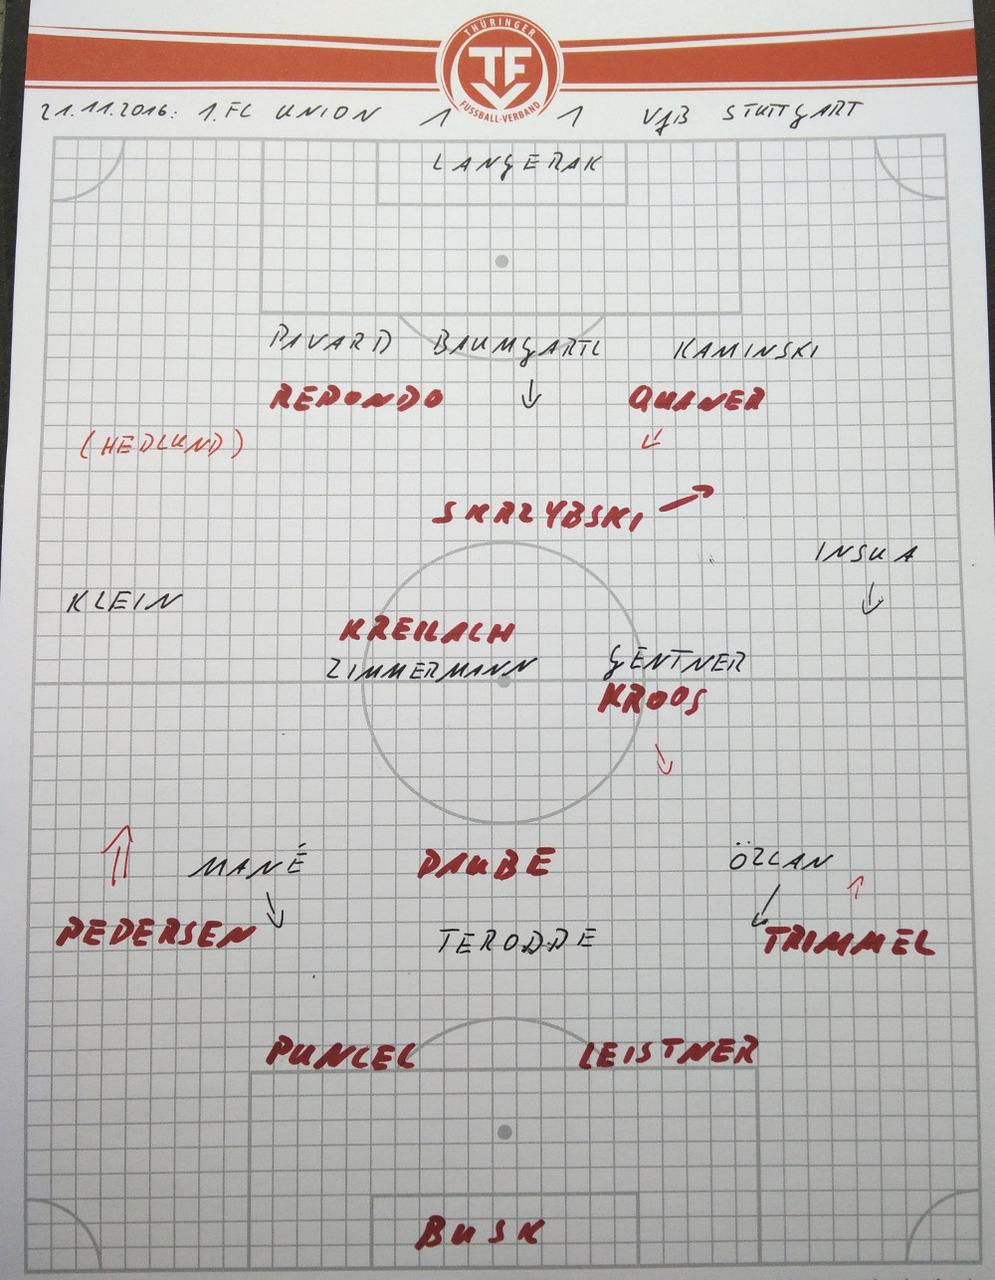 THÜRINGER
TF
FUSSBALL-VERBAND
21.11.2016: 1.FC UNION 1 1 VfB STUTTGART
LANGERAK
PAVARD BAUMGARTL KAMINSKI
REDONDO QUANER
(HEDLUND)
SKRZYBSKI
INSUA
KLEIN
KREILACH
ZIMMERMANN GENTNER
KROOS
MANÉ DAUBE ÖZCAN
PEDERSEN TERODDE TRIMMEL
PUNCEC LEISTNER
BUSK